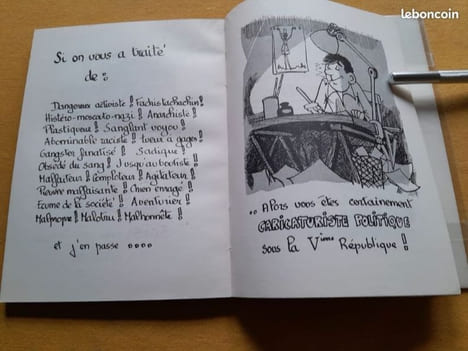 leboncoin
Si on vous a traité
de :
Dangereux activiste ! Fachistachochin !
Histéro-moscouto-nazi ! Anarchiste !
Plastiqueur ! Sanglant voyou !
Abominable raciste ! tueur à gages !
Gangster fanatisé ! Sadique !
Obsédé du sang ! Jusqu'auboutiste !
Malfaiteur ! Comploteur ! Agitateur !
Pieuvre malfaisante ! Chien enragé !
Ecume de la société ! Aventurier !
Malpropre ! Malotru ! Malhonnête !
et j'en passe ....
.. Alors vous êtes certainement
CARICATURISTE POLITIQUE
sous la Vième République !